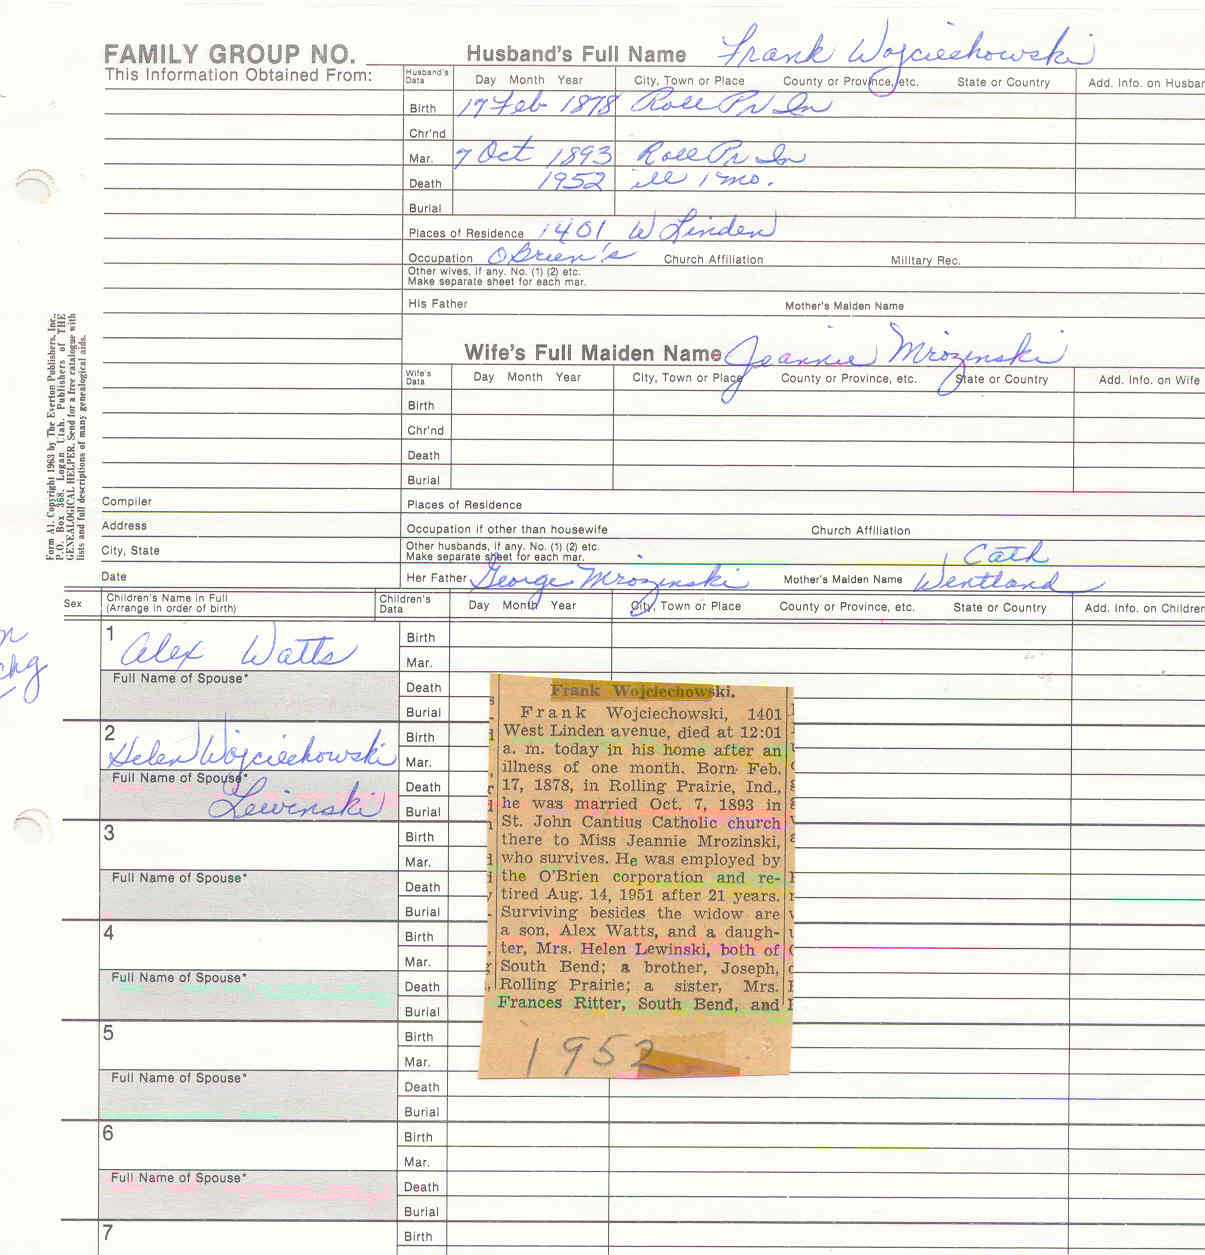 FAMILY GROUP NO.
Husband's Full Name Frank Wojciechowski
This Information Obtained From:
Husband's Data Day Month Year City, Town or Place County or Province, etc. State or Country Add. Info. on Husban
Birth 17 Feb 1878 Roll Pr In
Chr'nd
Mar. 7 Oct 1893 Roll Pr In
Death 1952 ill 1 mo.
Burial
Places of Residence 1401 W Linden
Occupation O'Brien's Church Affiliation Military Rec.
Other wives, if any. No. (1) (2) etc.
Make separate sheet for each mar.
His Father Mother's Maiden Name
Wife's Full Maiden Name Jeannie Mrozinski
Wife's Data Day Month Year City, Town or Place County or Province, etc. State or Country Add. Info. on Wife
Birth
Chr'nd
Death
Burial
Form A1. Copyright 1963 by The Everton Publishers, Inc.,
P.O. Box 368, Logan Utah. Publishers of THE
GENEALOGICAL HELPER. Send for a free catalogue with
lists and full descriptions of many genealogical aids.
Compiler Places of Residence
Address Occupation if other than housewife Church Affiliation
City, State Other husbands, if any. No. (1) (2) etc.
Make separate sheet for each mar.
Cath
Date Her Father George Mrozinski Mother's Maiden Name Wentland
Sex Children's Name in Full
(Arrange in order of birth)
Children's Data Day Month Year City, Town or Place County or Province, etc. State or Country Add. Info. on Children
1 Alex Watts Birth
Mar.
Full Name of Spouse* Death
Burial
2 Helen Wojciechowski Birth
Mar.
Full Name of Spouse* Lewinski Death
Burial
3 Birth
Mar.
Full Name of Spouse* Death
Burial
4 Birth
Mar.
Full Name of Spouse* Death
Burial
5 Birth
Mar.
Full Name of Spouse* Death
Burial
6 Birth
Mar.
Full Name of Spouse* Death
Burial
7 Birth
Frank Wojciechowski.
Frank Wojciechowski, 1401
West Linden avenue, died at 12:01
a. m. today in his home after an
illness of one month. Born Feb.
17, 1878, in Rolling Prairie, Ind.,
he was married Oct. 7, 1893 in
St. John Cantius Catholic church
there to Miss Jeannie Mrozinski,
who survives. He was employed by
the O'Brien corporation and re-
tired Aug. 14, 1951 after 21 years.
Surviving besides the widow are
a son, Alex Watts, and a daugh-
ter, Mrs. Helen Lewinski, both of
South Bend; a brother, Joseph,
Rolling Prairie; a sister, Mrs.
Frances Ritter, South Bend, and
1952